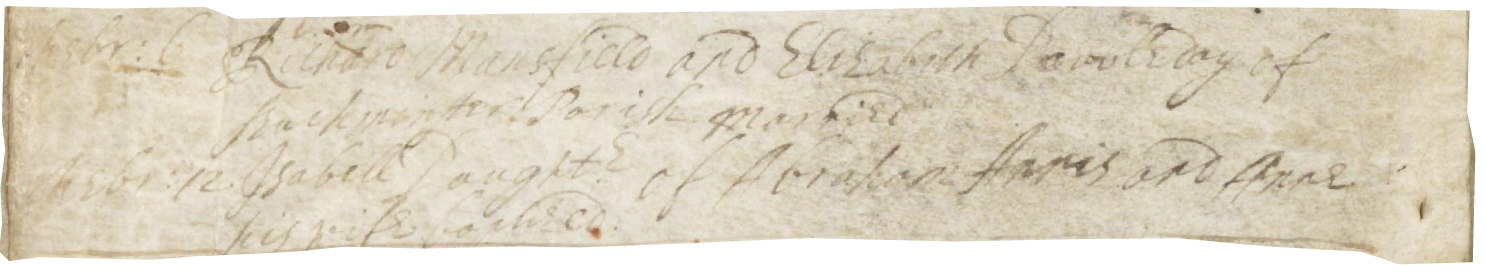 Febr: 6 Richard Mansfield and Elizabeth of
Buckminster Parish Married
Febr: 12 Isabell Daught.e of Abraham Annis and Anne
his wife